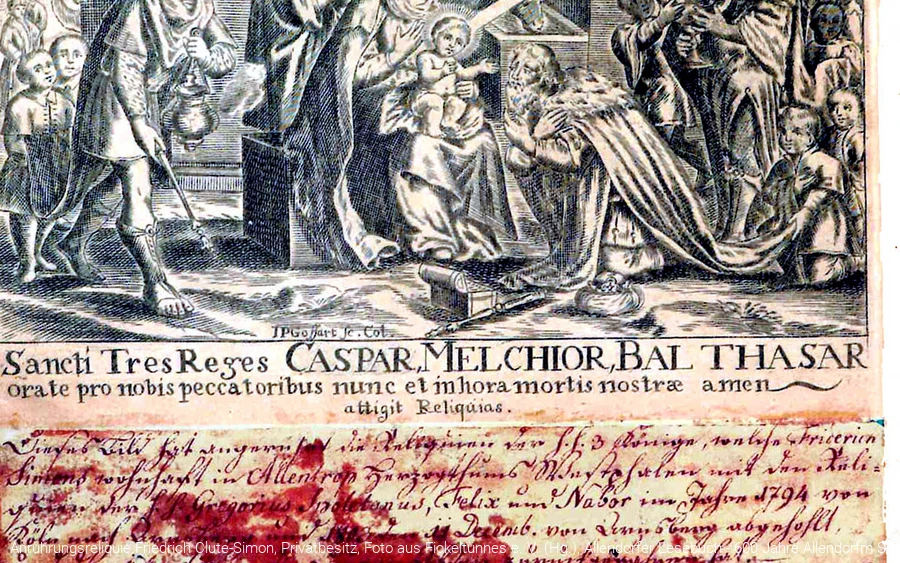 JPGoffart sc. Col.
Sancti Tres Reges CASPAR, MELCHIOR, BALTHASAR
orate pro nobis peccatoribus nunc et in hora mortis nostræ amen
attigit Reliquias.
Dieses Bild hat angerühret die Reliquien der h.h. 3 Könige, welche Friderich
Simens wohnhaft in Allentrop Herzogthums Westphalen mit den Reli-
quien der h.h. Gregorius Spoletanus, Felix und Nabor im Jahre 1794 von
Köln und den 11 Decemb. von Arnsberg abgehohlt,
Anrührungsreliquie Friedrich Clute-Simon, Privatbesitz, Foto aus Fickeltünnes e. V. (Hg.), Allendorfer Lesebuch. 600 Jahre Allendorf